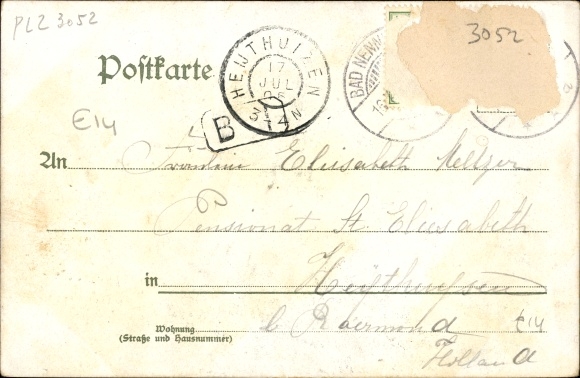 PLZ 3052
3052
Postkarte
HEIJTHUIZEN
17
JUL
3-4N
BAD NENN
B
€14
An Fräulein Elisabeth Meltzer
Pensionat St. Eliesabeth
in Heijthuysen
Wohnung
(Straße und Hausnummer)
b Roermond
€14
Holland